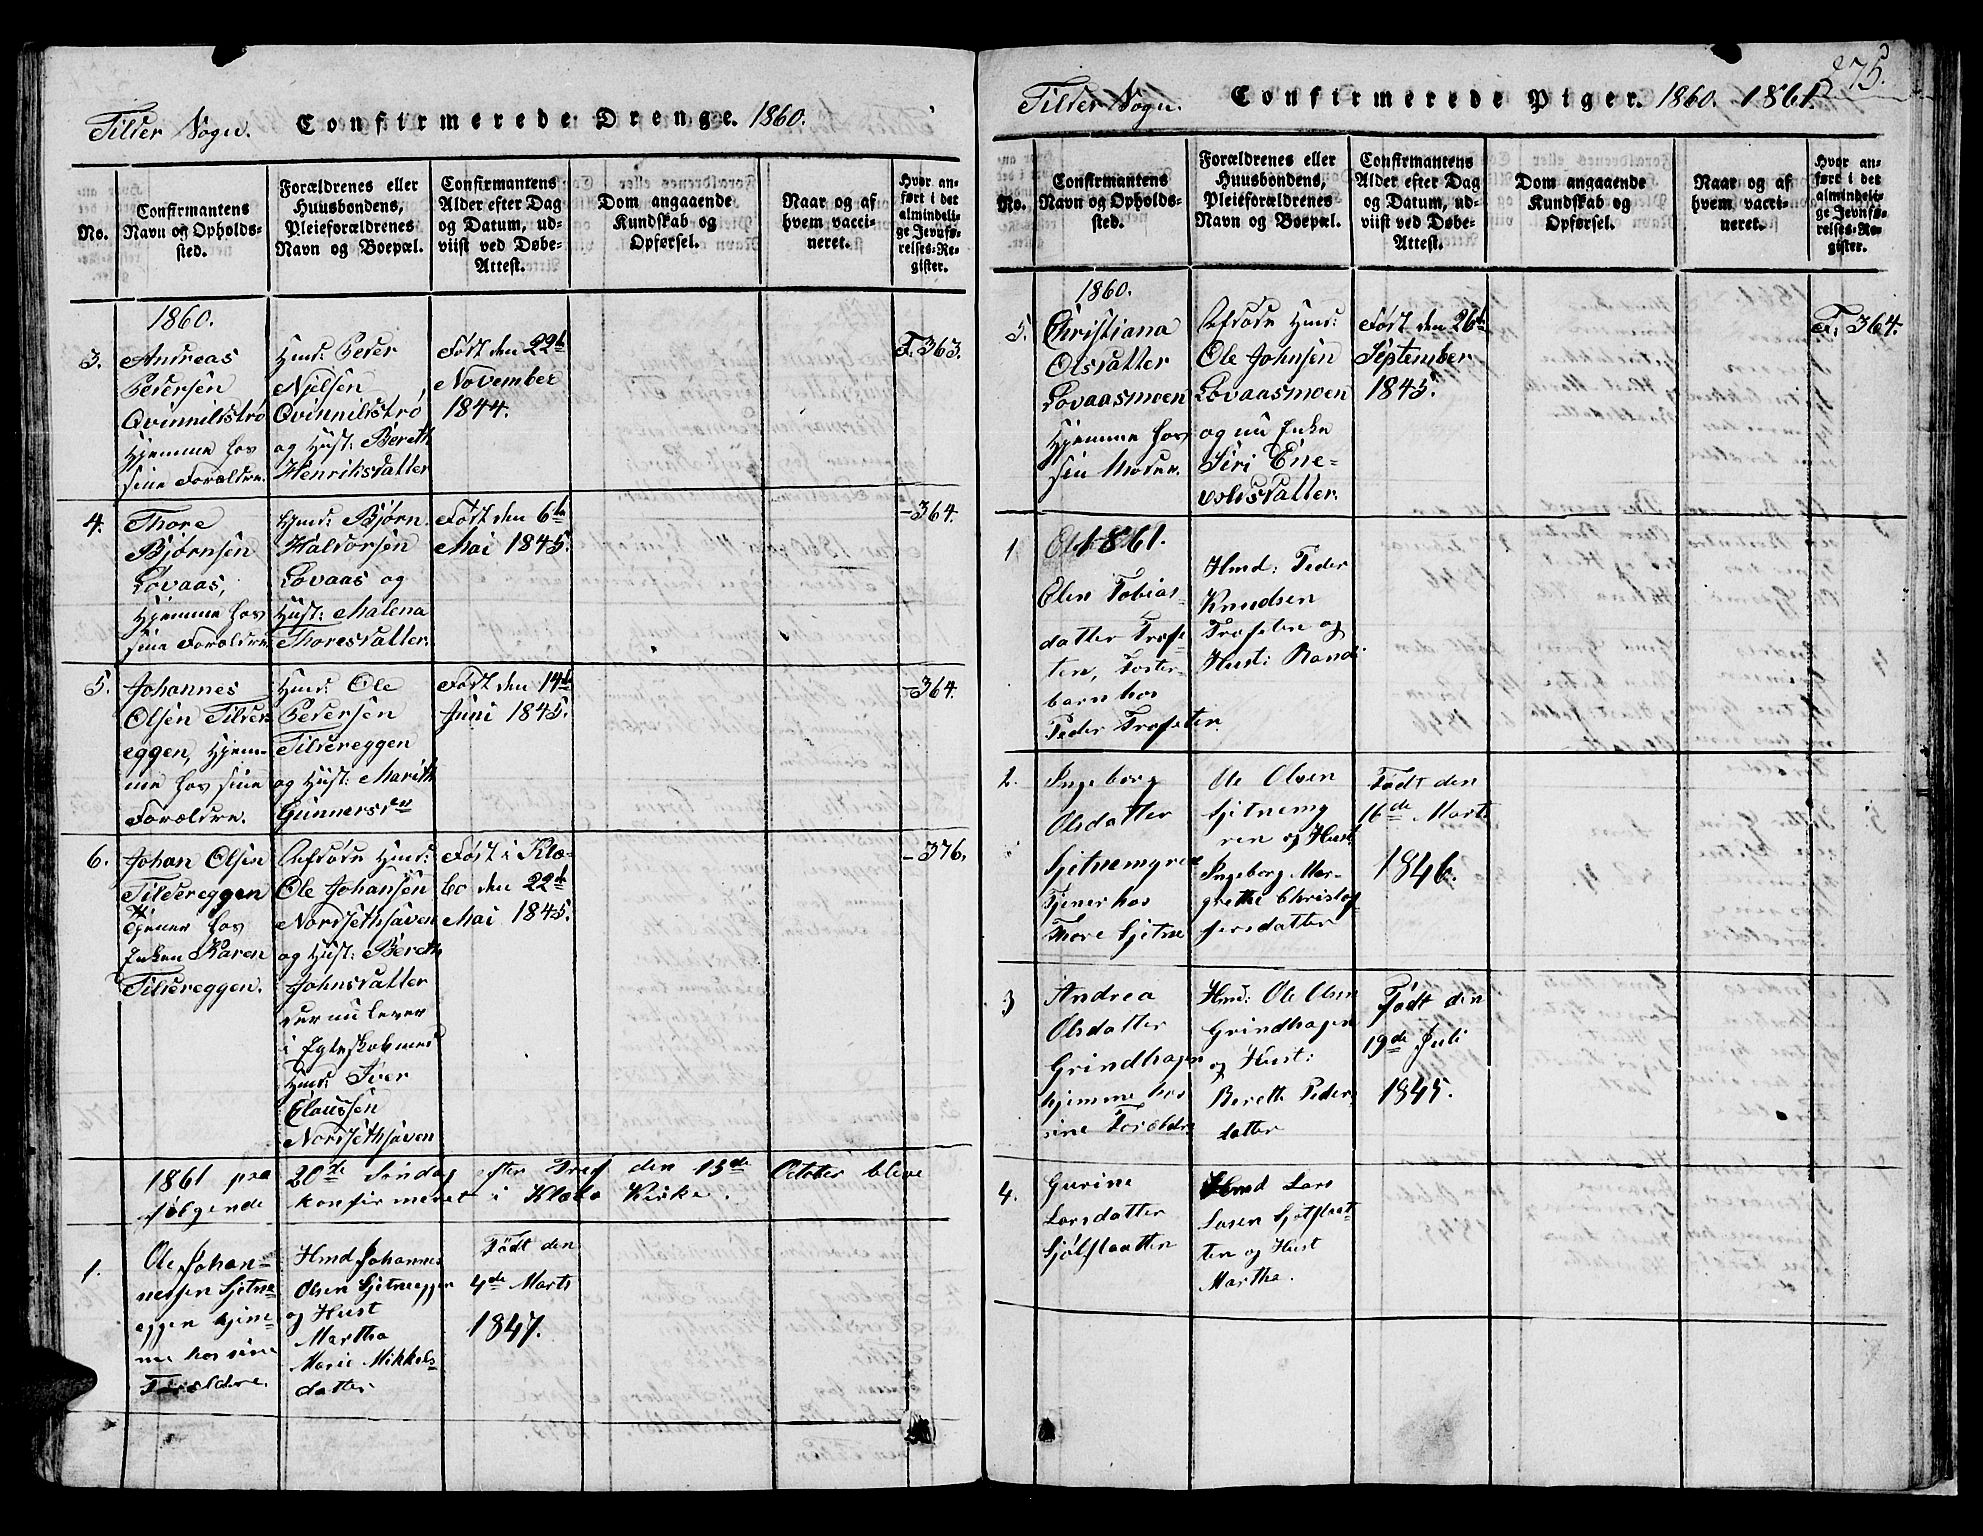 Tilder Sogn. Confirmerede Drenge. 1860.
No.
Confirmantens Navn og Opholdssted.
Forældrenes eller Huusbondens, Pleieforældrenes Navn og Boepæl.
Confirmantens Alder efter Dag og Datum, udviist ved Døbe-Attest.
Dom angaaende Kundskab og Opførsel.
Naar og af hvem vaccineret.
Hvor anført i det almindelige Jevnførelses-Register.
1860.
3.
Andreas
Pedersen
Qvinnildstrø
Hjemme hos
sine Forældre.
Hmd: Peder
Nielsen,
Qvinnildstrø
og Hust: Bereth
Henriksdatter
Født den 22de
November
1844.
F. 363.
4.
Thore
Bjørnsen
Lovaas,
Hjemme hos
sine Forældre.
Hmd: Bjørn
Haldorsen
Lovaas og
Hust: Malena
Thoresdatter.
Født den 6te
Mai 1845.
- 364.
5.
Johannes
Olsen Tilder-
eggen, Hjem-
me hos sine
Forældre.
Hmd: Ole
Pedersen
Tildereggen
og Hust: Marith
Gunnersdr
Født den 14de
Juni 1845.
- 364.
6.
Johan Olsen
Tildereggen
Tjener hos
Enken Karen
Tildereggen.
Afdøde Hmd:
Ole Johansen
Nordsethsaven
og Hust: Bereth
Johnsdatter
der nu lever
i Egteskab med
Hmd: Iver
Claussen
Nordsethsaven
Født i Klæ-
bo den 22de
Mai 1845.
- 376.
1861 paa 20de Søndag efter Tref den 13de October bleve
følgende konfirmeret i Klæbo Kirke.
1.
Ole Johan-
nessen Sjetne-
eggen hjem-
me hos sine
Forældre.
Hmd Johannes
Olsen Sjetneeggen
og Hust
Martha
Marie Mikkels-
datter
Født den
4de Marts
1847.
275.
Tilder Sogn. Confirmerede Piger. 1860. 1861.
No.
Confirmantens Navn og Opholdssted.
Forældrenes eller Huusbondens, Pleieforældrenes Navn og Boepæl.
Confirmantens Alder efter Dag og Datum, udviist ved Døbe-Attest.
Dom angaaende Kundskab og Opførsel.
Naar og af hvem vaccineret.
Hvor anført i det almindelige Jevnførelses-Register.
1860.
5.
Christiana
Olsdatter
Lovaasmoen
Hjemme hos
sin Moder.
Afdøde Hmd:
Ole Johnsen
Lovaasmoen
og nu Enke
Siri Ene-
voldsdatter.
Født den 26de
September
1845.
F. 364.
1861.
1
Elen Tobias-
datter Trofe-
ten, Foster-
barn hos
Peder Trofeten
Hmd: Peder
Knudsen
Trofeten og
Hust: Randi
2.
Ingeborg
Olsdatter
Sjetnemyren
Tjener hos
Thore Sjetne
Ole Olsen
Sjetnemy
ren og Hust
Ingeborg Mar-
grethe Christof
fersdatter
Født den
16de Marts
1846.
3
Andrea
Olsdatter
Grindhagen
hjemme hos
sine Forældre
Hmd: Ole Olsen
Grindhagen
og Hust:
Bereth Peder-
datter
Født den
19de Juli
1845.
4.
Gurine
Larsdatter
Sjølflaatten
Hmd Lars
Larsen Sjølflaat-
ten og Hust
Martha.